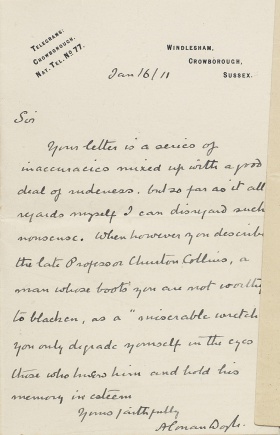 TELEGRAMS:
CROWBOROUGH.
NAT. TEL. No 77.
WINDLESHAM,
CROWBOROUGH,
SUSSEX.
Jan 16/11
Sir
Your letter is a series of
inaccuracies mixed up with a good
deal of rudeness, but so far as it all
regards myself I can disregard such
nonsense. When however you describe
the late Professor Churton Collins, a
man whose boots you are not worthy
to blacken, as a "miserable wretch
you only degrade yourself in the eyes
those who knew him and hold his
memory in esteem
Yours faithfully
A Conan Doyle.